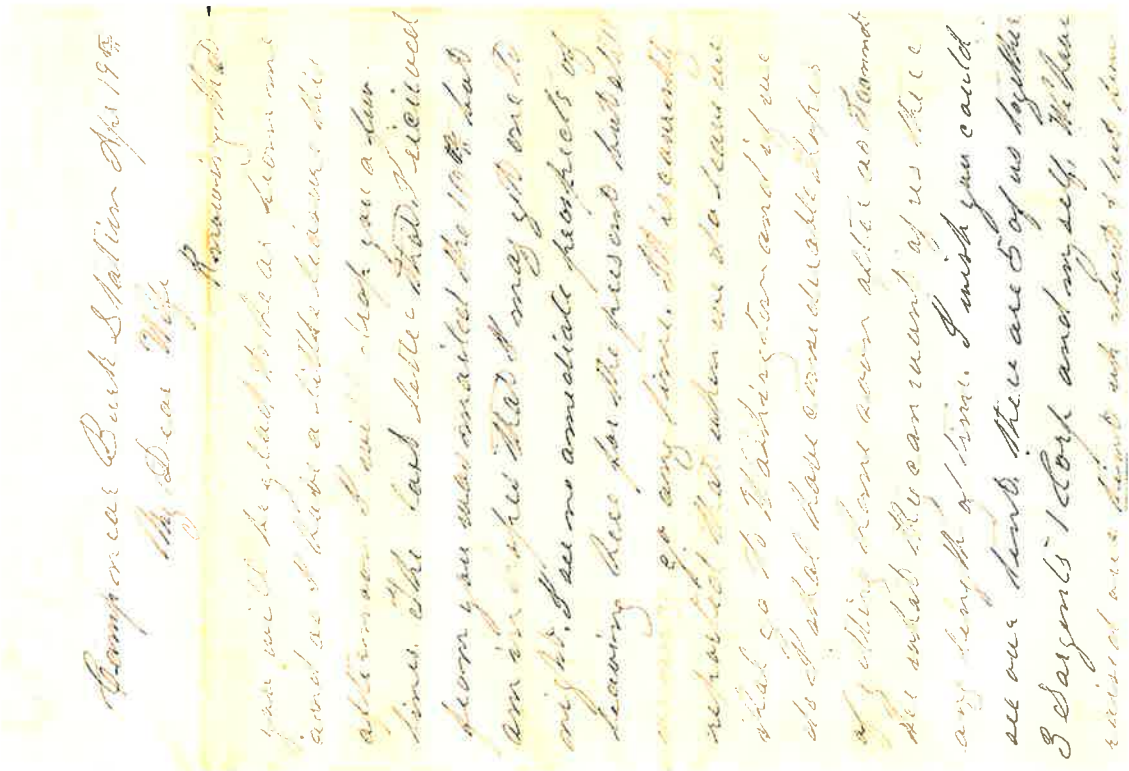 Camp near Burk Station Apr 19th
My Dear Wife
Knowing that
you will be glad to hear from me
and as I have a little leisure this
afternoon I will drop you a few
lines. The last letter that I recieved
from you was mailed the 10th but
am in hopes that I may get one to
night. I see no amediate prospects of
leaving here for the present but still
go any time. It is currently
reported that when we do leave we
shal go to Washington and if we
do I shal have considerable hopes
of getting home soon after as
see what they can want of us there
any length of time. I wish you could
see our tent. there are 5 of us together
3 Sargents 1 Corp and myself. We have
raised our tent up about 4 feet from